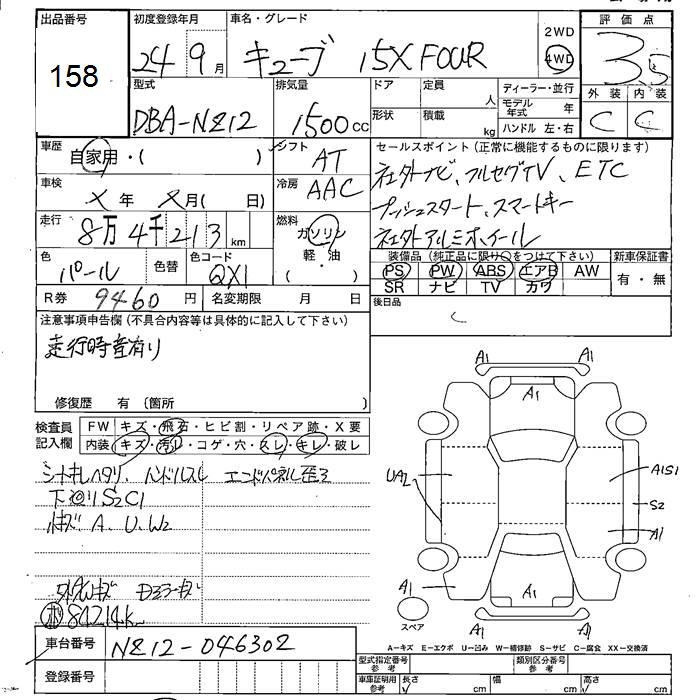 出品番号 初度登録年月 車名・グレード 評価点
158
24 9月 キューブ 15X FOUR 2WD 4WD 3.5
外装 内装
C C
型式 排気量 ドア 定員 人 ディーラー・並行
DBA-NZ12 1500cc 形状 積載 kg モデル年式 年
ハンドル 左・右
車歴 自家用・( ) シフト AT
車検 年 月( 日) 冷房 AAC
走行 8万4千213km 燃料 ガソリン 軽・油
色 パール 色替 色コード QX1
R券 9460円 名変期限 月 日
セールスポイント(正常に機能するものに限ります)
社外ナビ、フルセグTV、ETC
プッシュスタート、スマートキー
社外アルミホイール
装備品(純正品に限り○をつけて下さい) 新車保証書
PS PW ABS エアB AW 有・無
SR ナビ TV カワ
後日品
注意事項申告欄(不具合内容等は具体的に記入して下さい)
走行時音有り
修復歴 有 (箇所 )
検査員記入欄
FW キズ・飛石・ヒビ割・リペア跡・X要
内装 キズ・汚れ・コゲ・穴・スレ・キレ・破レ
シートキレヘタリ、ハンドルスレ エンドパネル歪ミ
下廻りS2C1
小キズ A.U.W2
外W小キズ Dミラーキズ
84214k
車台番号 NZ12-046302
登録番号
A1 A1
A1
UA2
A1S1
S2
A1
A1
A1 A1
スペア
A-キズ E-エクボ U-凹み W-補修跡 S-サビ C-腐食 XX-交換済
型式指定番号 参考 類別区分番号 参考
車庫証明用 参考 長さ cm 幅 cm 高さ cm